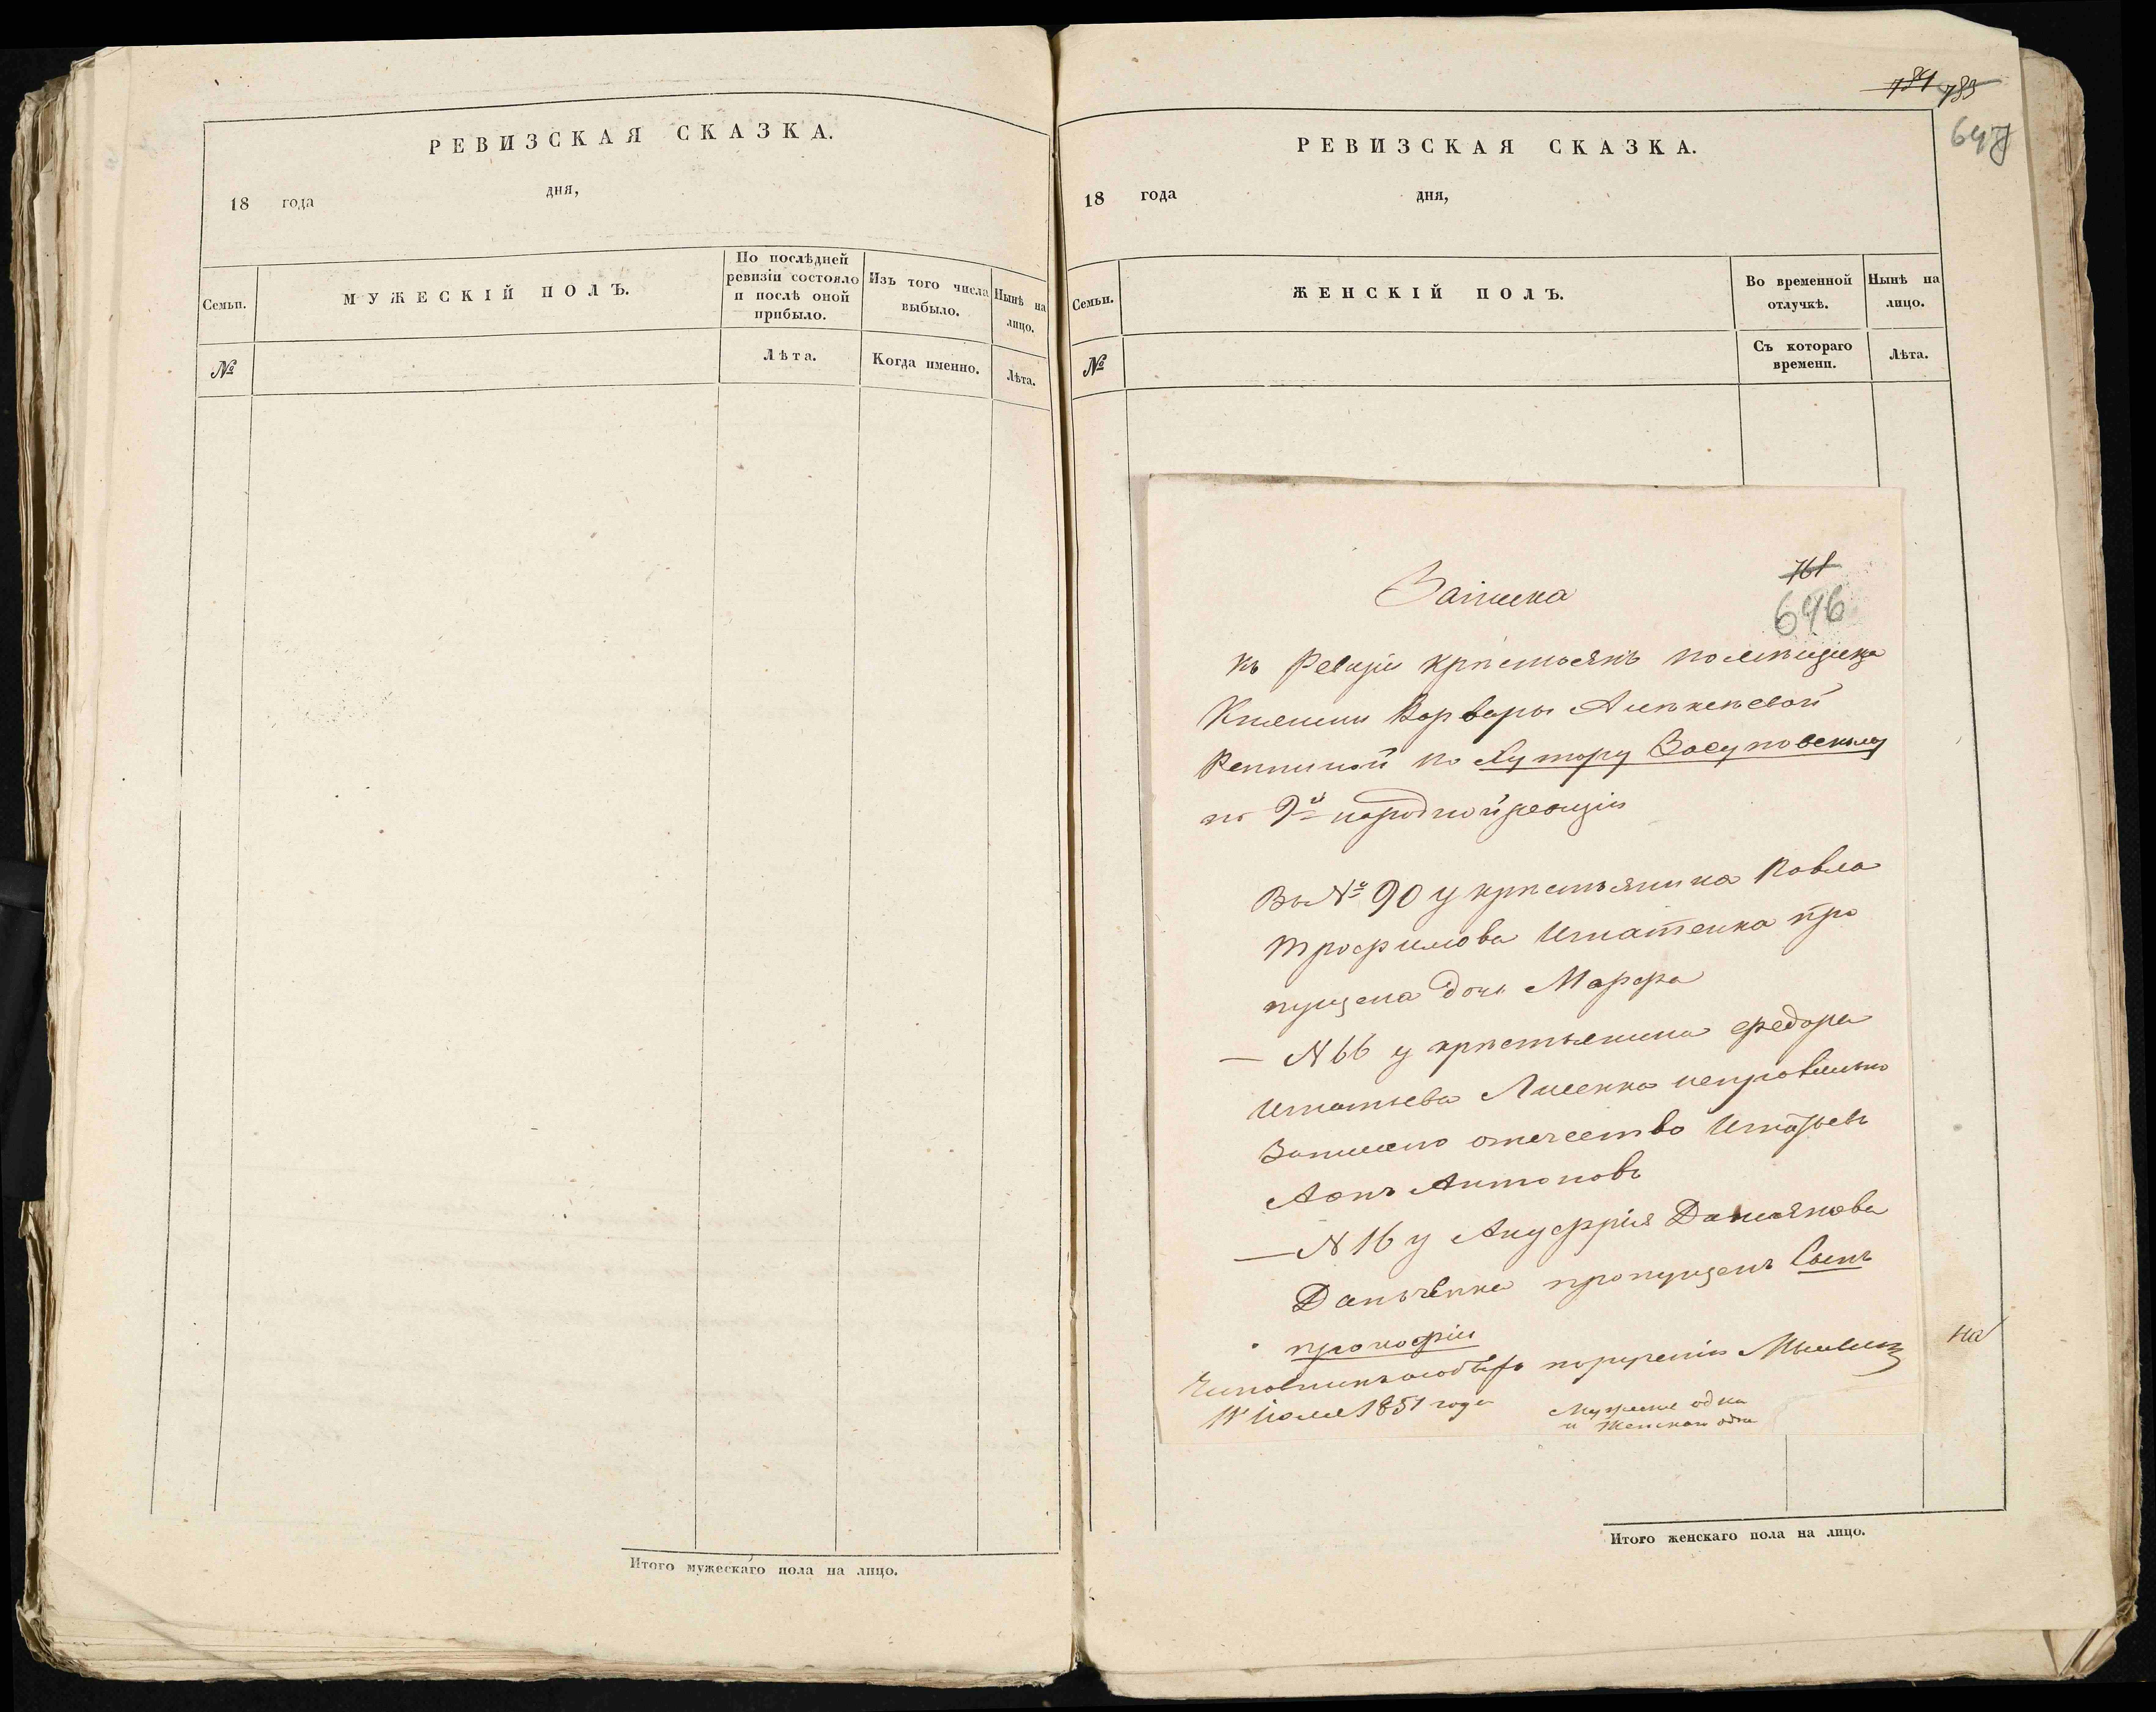 РЕВИЗСКАЯ СКАЗКА.
18 года дня,
Семьи.
МУЖЕСКІЙ ПОЛЪ.
По послѣдней
ревизіи состояло
и послѣ оной
прибыло.
Изъ того числа
выбыло.
Нынѣ на
лицо.
№
Лѣта.
Когда именно.
Лѣта.
Итого мужескаго пола на лицо.
784 783
647
РЕВИЗСКАЯ СКАЗКА.
18 года дня,
Семьи.
ЖЕНСКІЙ ПОЛЪ.
Во временной
отлучкѣ.
Нынѣ на
лицо.
№
Съ котораго
времени.
Лѣта.
761
Записка
646
къ Ревизіи крѣстьянъ помѣщика
Княгини Варвары Алѣксѣевой
Репниной по Хутору Засуповскому
по 9й народной ревизіи
Въ № 90 у крѣстьянина Павла
Трофимова Игнатенка про
пущена дочь Марфа
— N 66 у крѣстьянина федора
Игнатьева Лисенка неправильно
Записано отечество Игнатьевъ
Аонъ Антоновъ
— N 16 у Ануфрія Дамиянова
Данченка пропущенъ Сынъ
прокофіи
Чиновникъ особыхъ порученій
Іюля 1851 года
Мужеска одна
и Женская одна
на
Итого женскаго пола на лицо.